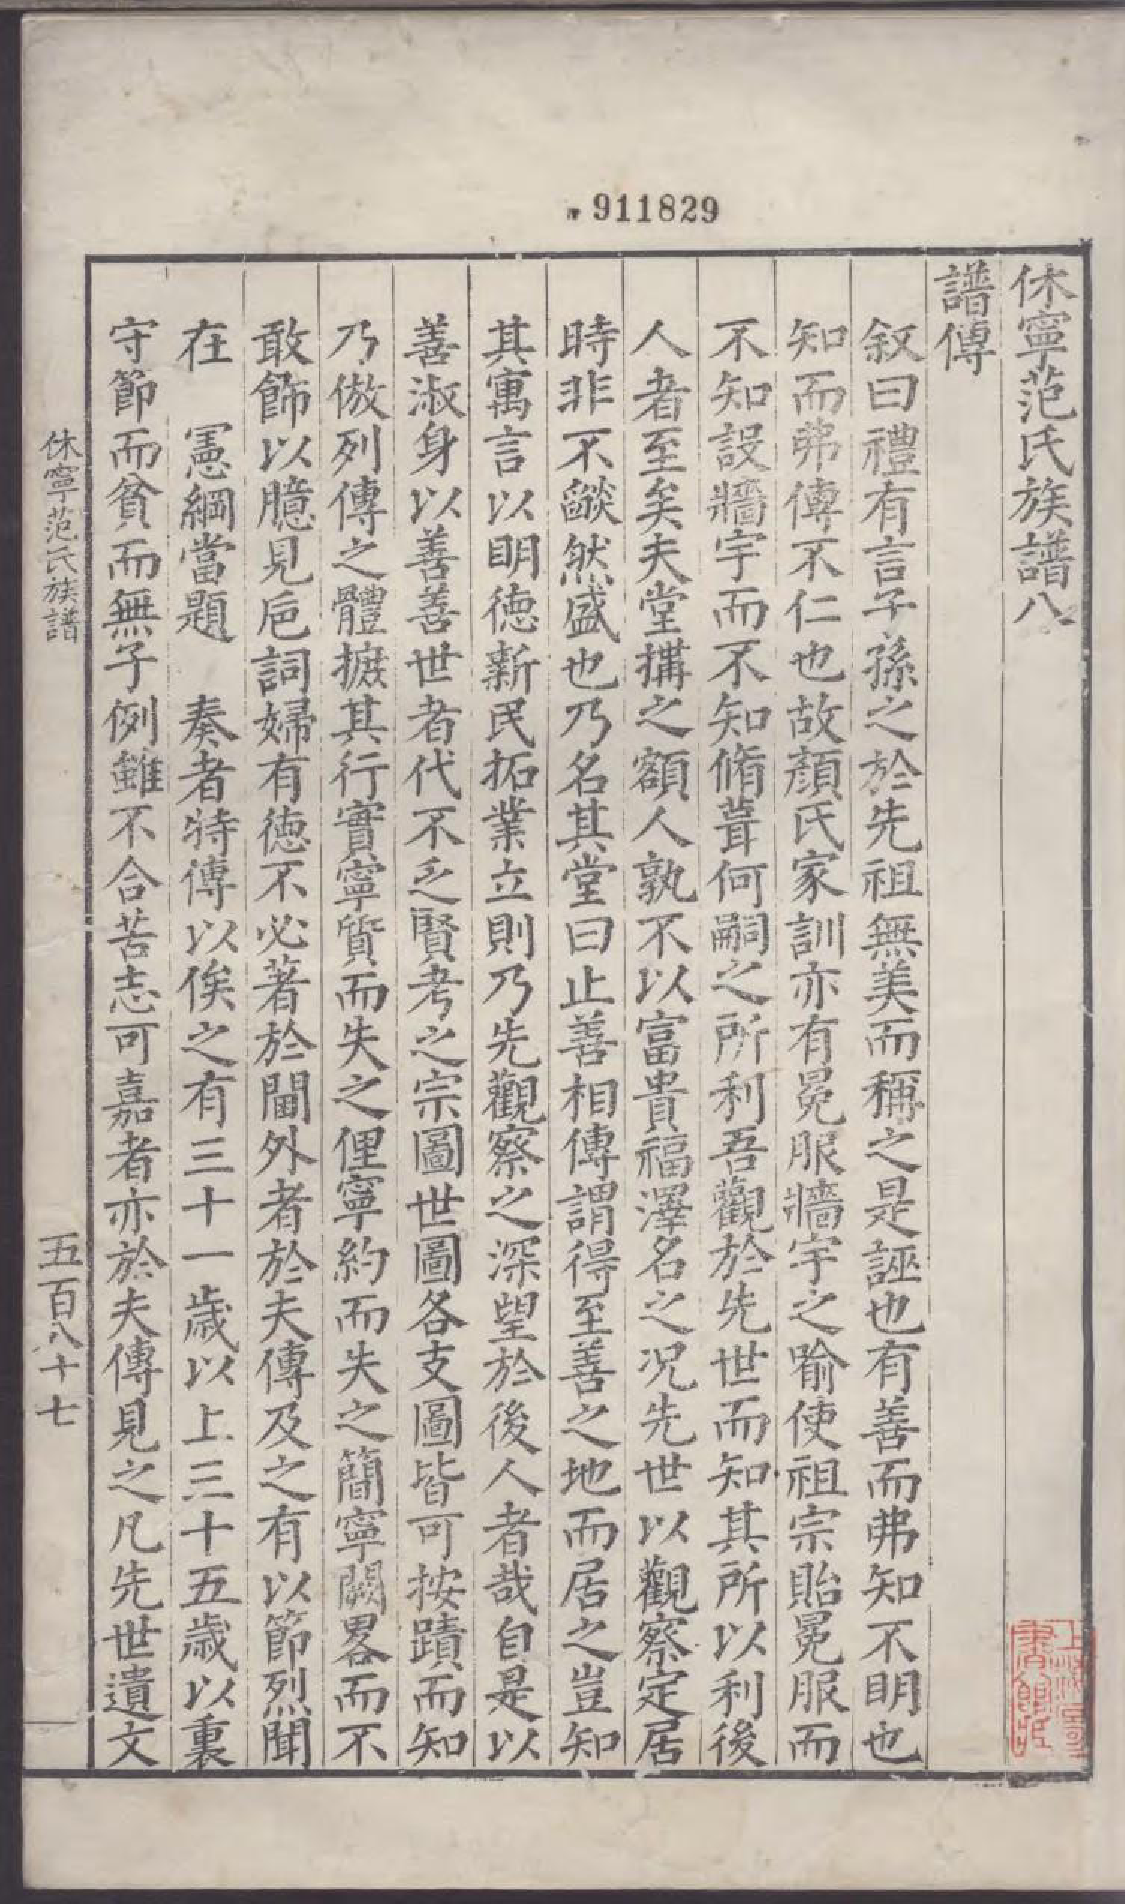 911829
休寧范氏族譜八
譜傳
叙曰禮有言子孫之於先祖無美而稱之是誣也有善而弗知不明也
知而弗傳不仁也故顔氏家訓亦有冕服牆宇之喻使祖宗貽冕服而
不知設牆宇而不知脩葺何嗣之所利吾觀於先世而知其所以利後
人者至矣夫堂搆之額人孰不以富貴福澤名之况先世以觀察定居
時非不燄然盛也乃名其堂曰止善相傳謂得至善之地而居之豈知
其寓言以明德新民拓業立則乃先觀察之深望於後人者哉自是以
善淑身以善善世者代不乏賢考之宗圖世圖各支圖皆可按蹟而知
乃倣列傳之體摭其行實寧質而失之俚寧約而失之簡寧闕畧而不
敢飾以臆見卮詞婦有德不必著於閫外者於夫傳及之有以節烈聞
在　憲綱當題　奏者特傳以俟之有三十一歲以上三十五歲以裏
守節而貧而無子例雖不合苦志可嘉者亦於夫傳見之凡先世遺文
休寧范氏族譜
五百八十七